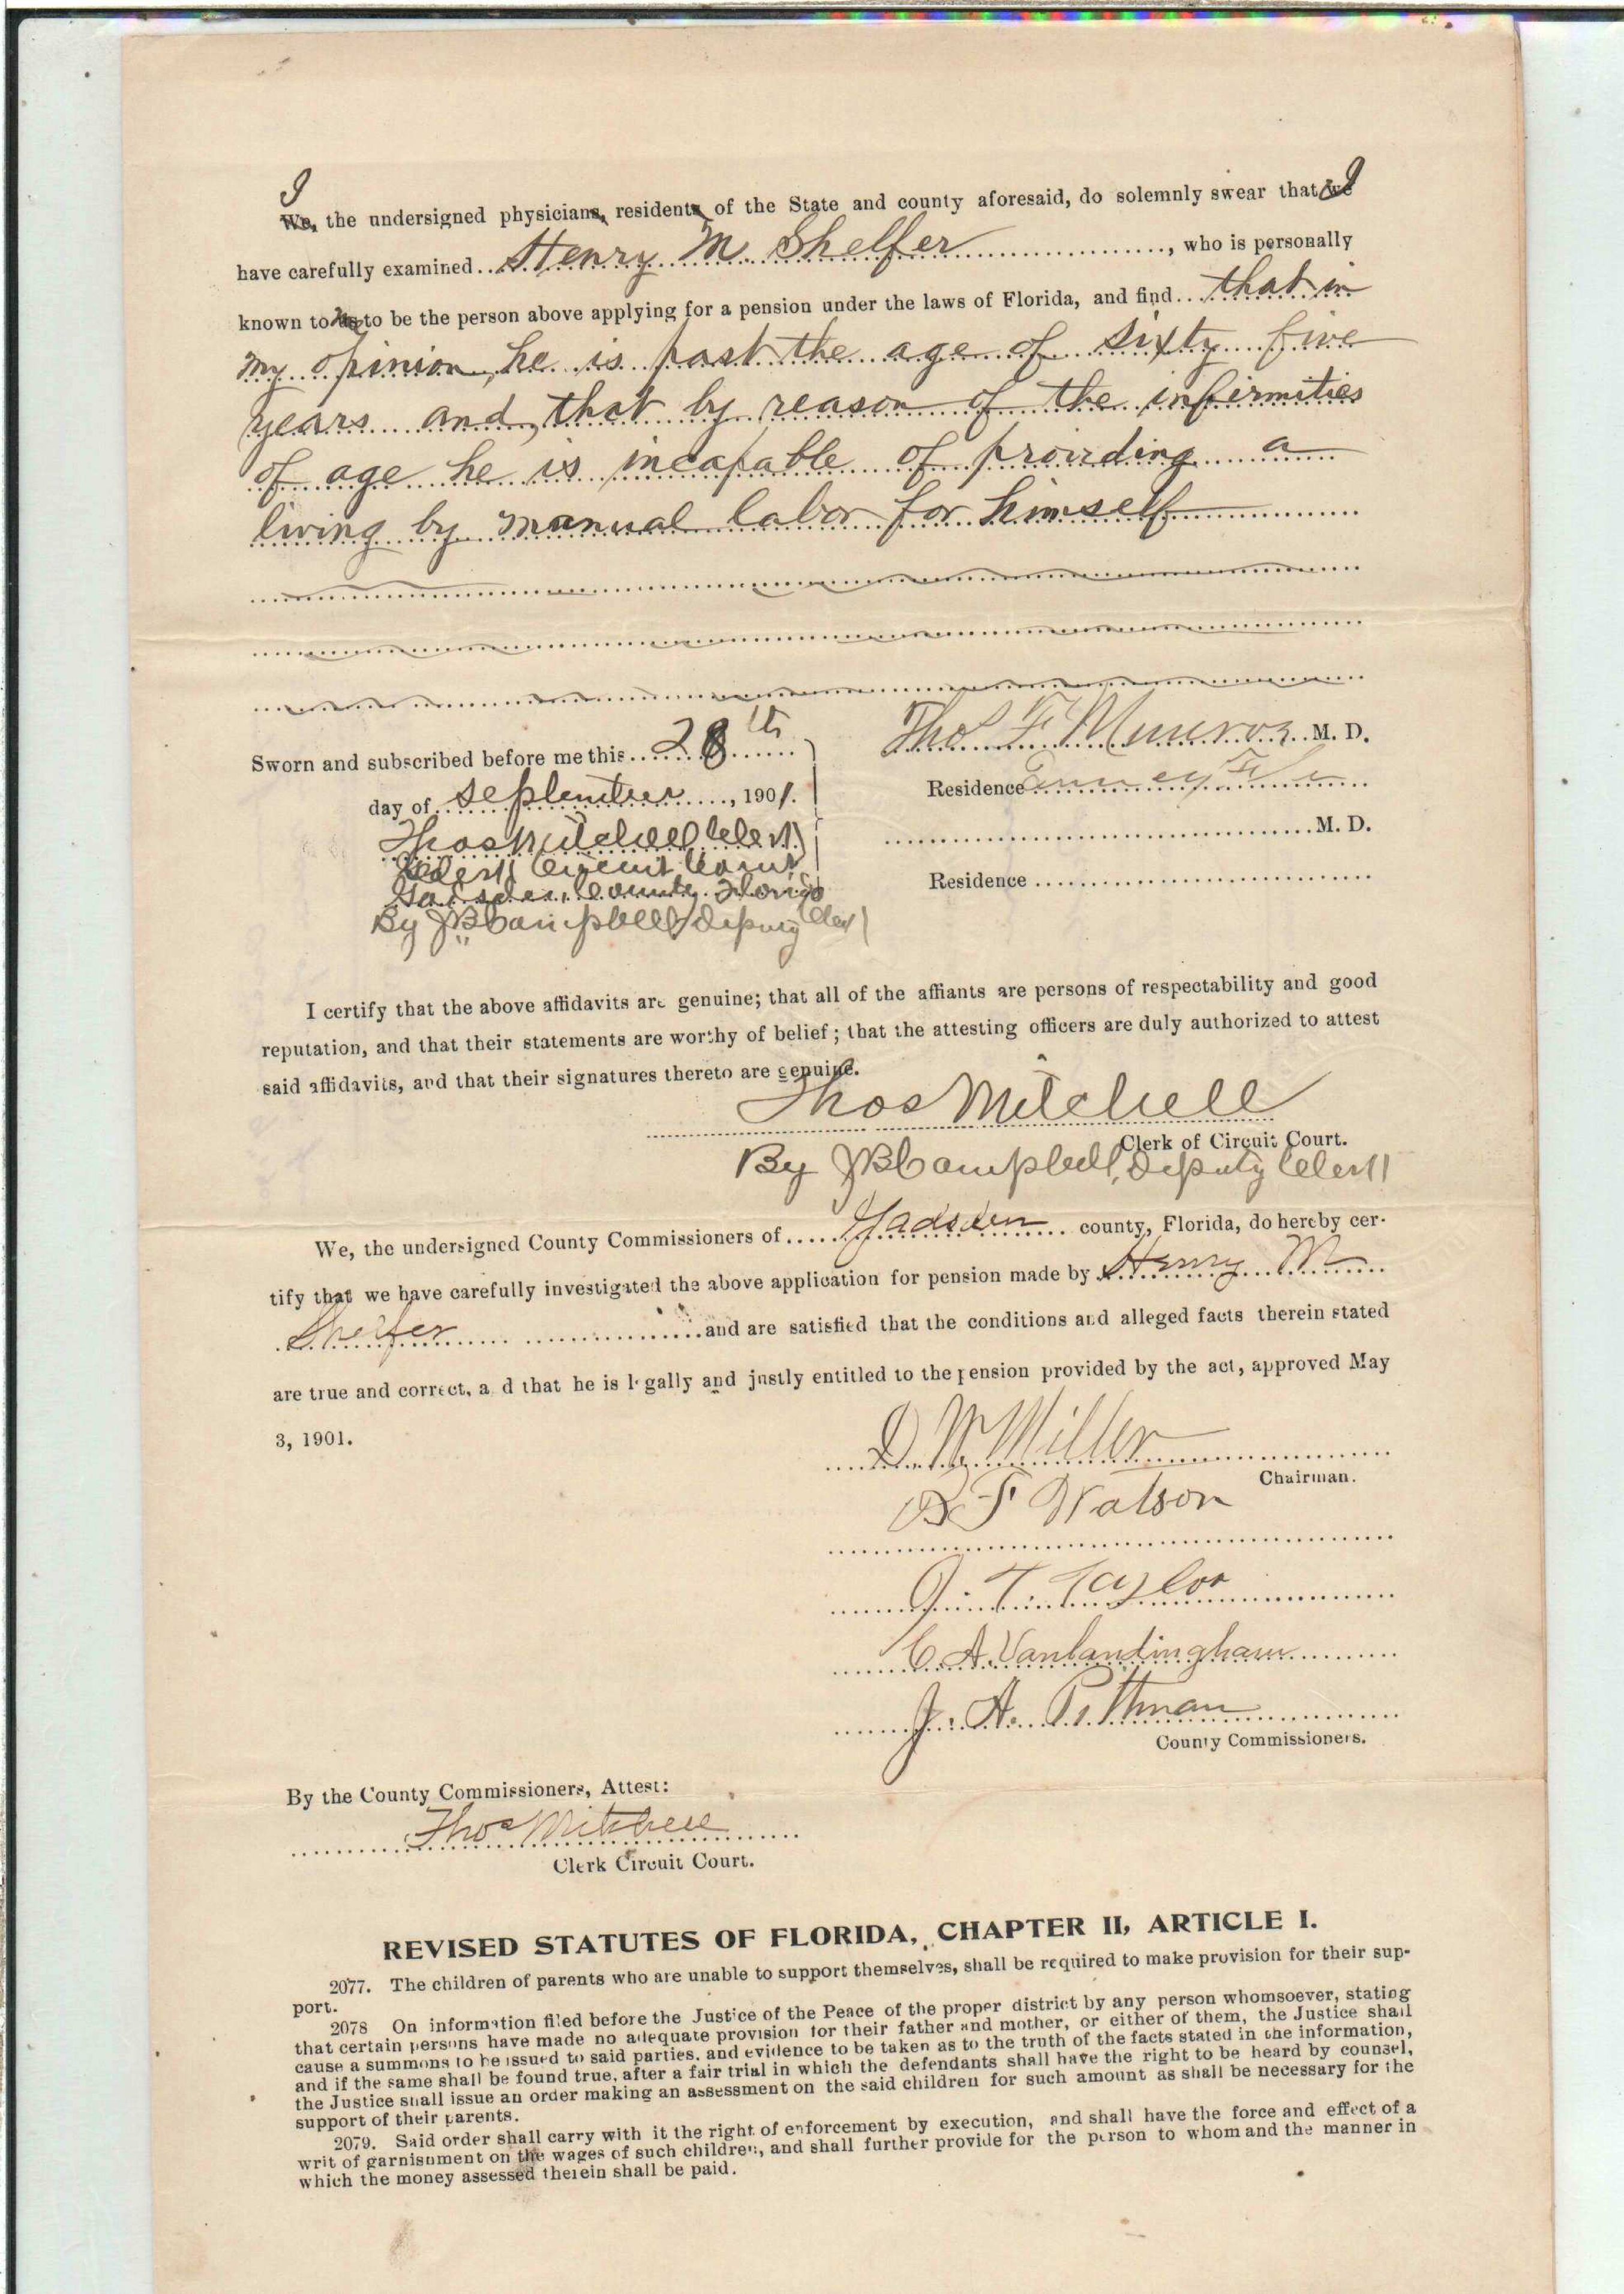 I
We, the undersigned physicians, residents of the State and county aforesaid, do solemnly swear that we I
have carefully examined Henry M. Shelfer, who is personally
known to me to be the person above applying for a pension under the laws of Florida, and find that in
my opinion, he is past the age of sixty five
years and, that by reason of the infirmities
of age he is incapable of providing a
living by manual labor for himself
Sworn and subscribed before me this 28th
day of September, 1901.
Thos Mitchell Clerk
Clerk Circuit Court
Gadsden County Florida
By JB Campbell Deputy Clerk
Thos F. Munroe M. D.
Residence
M. D.
Residence
I certify that the above affidavits are genuine; that all of the affiants are persons of respectability and good
reputation, and that their statements are worthy of belief; that the attesting officers are duly authorized to attest
said affidavits, and that their signatures thereto are genuine.
Thos Mitchell
Clerk of Circuit Court.
By JB Campbell, Deputy Clerk
We, the undersigned County Commissioners of Gadsden county, Florida, do hereby cer-
tify that we have carefully investigated the above application for pension made by Henry M
Shelfer and are satisfied that the conditions and alleged facts therein stated
are true and correct, a d that he is legally and justly entitled to the pension provided by the act, approved May
3, 1901.
D. W. Miller
Chairman.
B F Watson
J. T. Taylor
C. A. Vanlandingham
J. A. Pittman
County Commissioners.
By the County Commissioners, Attest:
Thos Mitchell
Clerk Circuit Court.
REVISED STATUTES OF FLORIDA, CHAPTER II, ARTICLE I.
2077. The children of parents who are unable to support themselves, shall be required to make provision for their sup-
port.
2078 On information filed before the Justice of the Peace of the proper district by any person whomsoever, stating
that certain persons have made no adequate provision for their father and mother, or either of them, the Justice shall
cause a summons to be issued to said parties, and evidence to be taken as to the truth of the facts stated in the information,
and if the same shall be found true, after a fair trial in which the defendants shall have the right to be heard by counsel,
the Justice shall issue an order making an assessment on the said children for such amount as shall be necessary for the
support of their parents.
2079. Said order shall carry with it the right of enforcement by execution, and shall have the force and effect of a
writ of garnishment on the wages of such children, and shall further provide for the person to whom and the manner in
which the money assessed therein shall be paid.